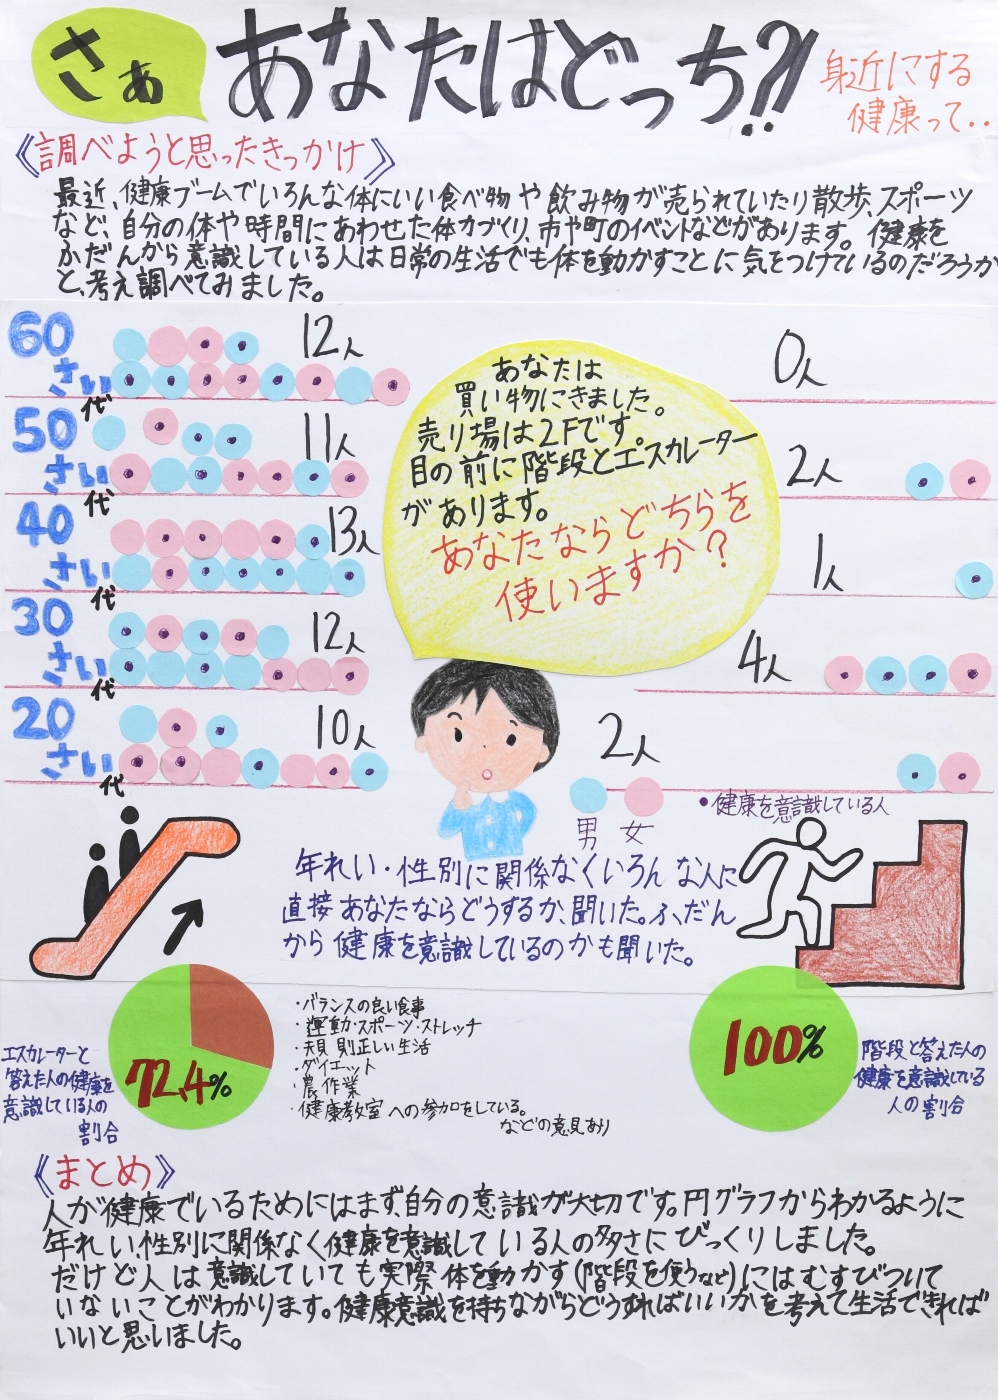 さぁ
あなたはどっち?!
身近にする
健康って・・
《調べようと思ったきっかけ》
最近、健康ブームでいろんな体にいい食べ物や飲み物が売られていたり散歩、スポーツ
など、自分の体や時間にあわせた体力づくり、市や町のイベントなどがあります。健康を
ふだんから意識している人は日常の生活でも体を動かすことに気をつけているのだろうか
と、考え調べてみました。
60
さい
代
12人
0人
50
さい
代
11人
2人
40
さい
代
13人
1人
30
さい
代
12人
4人
20
さい
代
10人
2人
あなたは
買い物にきました。
売り場は2Fです。
目の前に階段とエスカレーター
があります。
あなたならどちらを
使いますか?
男 女
●健康を意識している人
年れい・性別に関係なくいろんな人に
直接あなたならどうするか、聞いた。ふだん
から健康を意識しているのかも聞いた。
エスカレーターと
答えた人の健康を
意識している人の
割合
72.4%
・バランスの良い食事
・運動・スポーツ・ストレッチ
・規則正しい生活
・ダイエット
・農作業
・健康教室への参加をしている。
などの意見あり
100%
階段と答えた人の
健康を意識している
人の割合
《まとめ》
人が健康でいるためにはまず、自分の意識が大切です。円グラフからわかるように
年れい、性別に関係なく健康を意識している人の多さにびっくりしました。
だけど人は意識していても実際体を動かす(階段を使うなど)にはむすびついて
いないことがわかります。健康意識を持ちながらどうすればいいかを考えて生活できれば
いいと思いました。